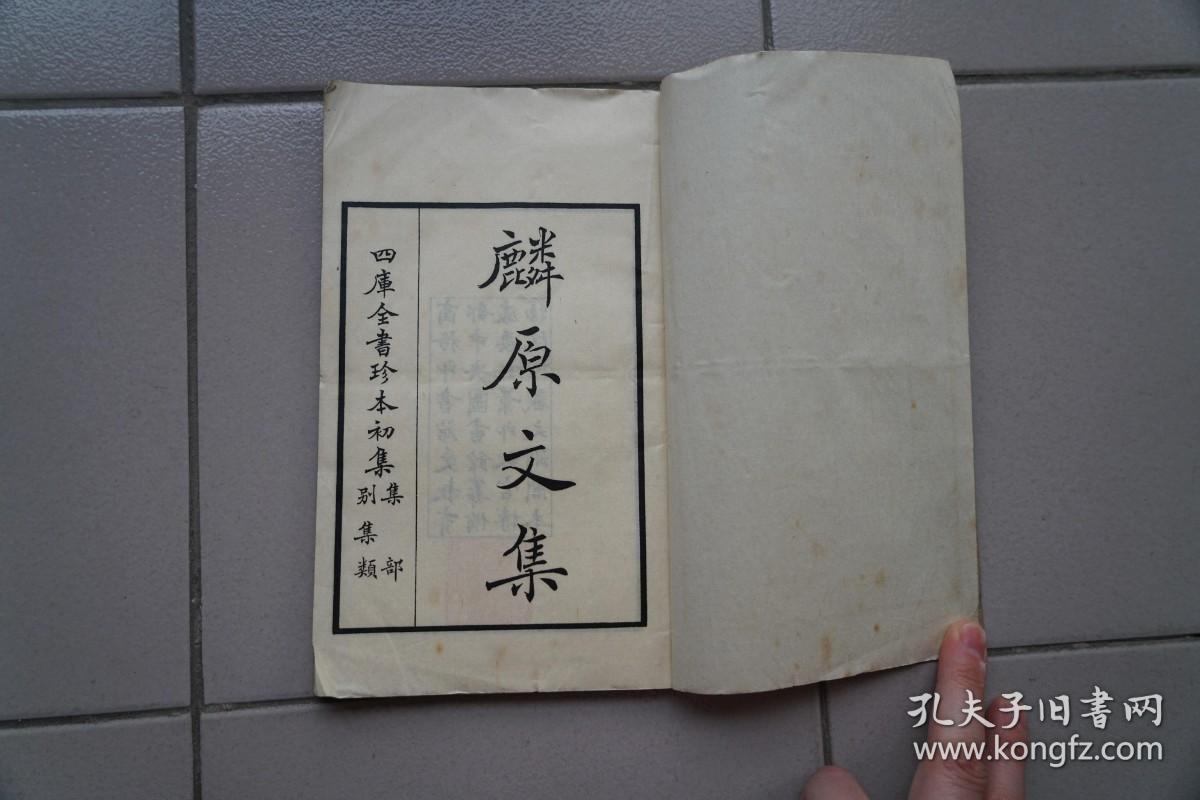 麟原文集
四庫全書珍本初集集部
別集類
孔夫子旧書网
www.kongfz.com